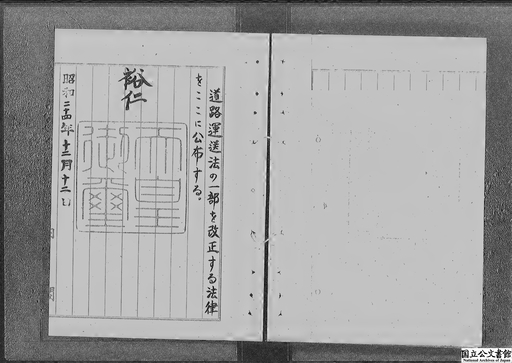 道路運送法の一部を改正する法律
をここに公布する。
裕仁
天皇
御璽
昭和二十四年十二月十二日
国立公文書館
National Archives of Japan